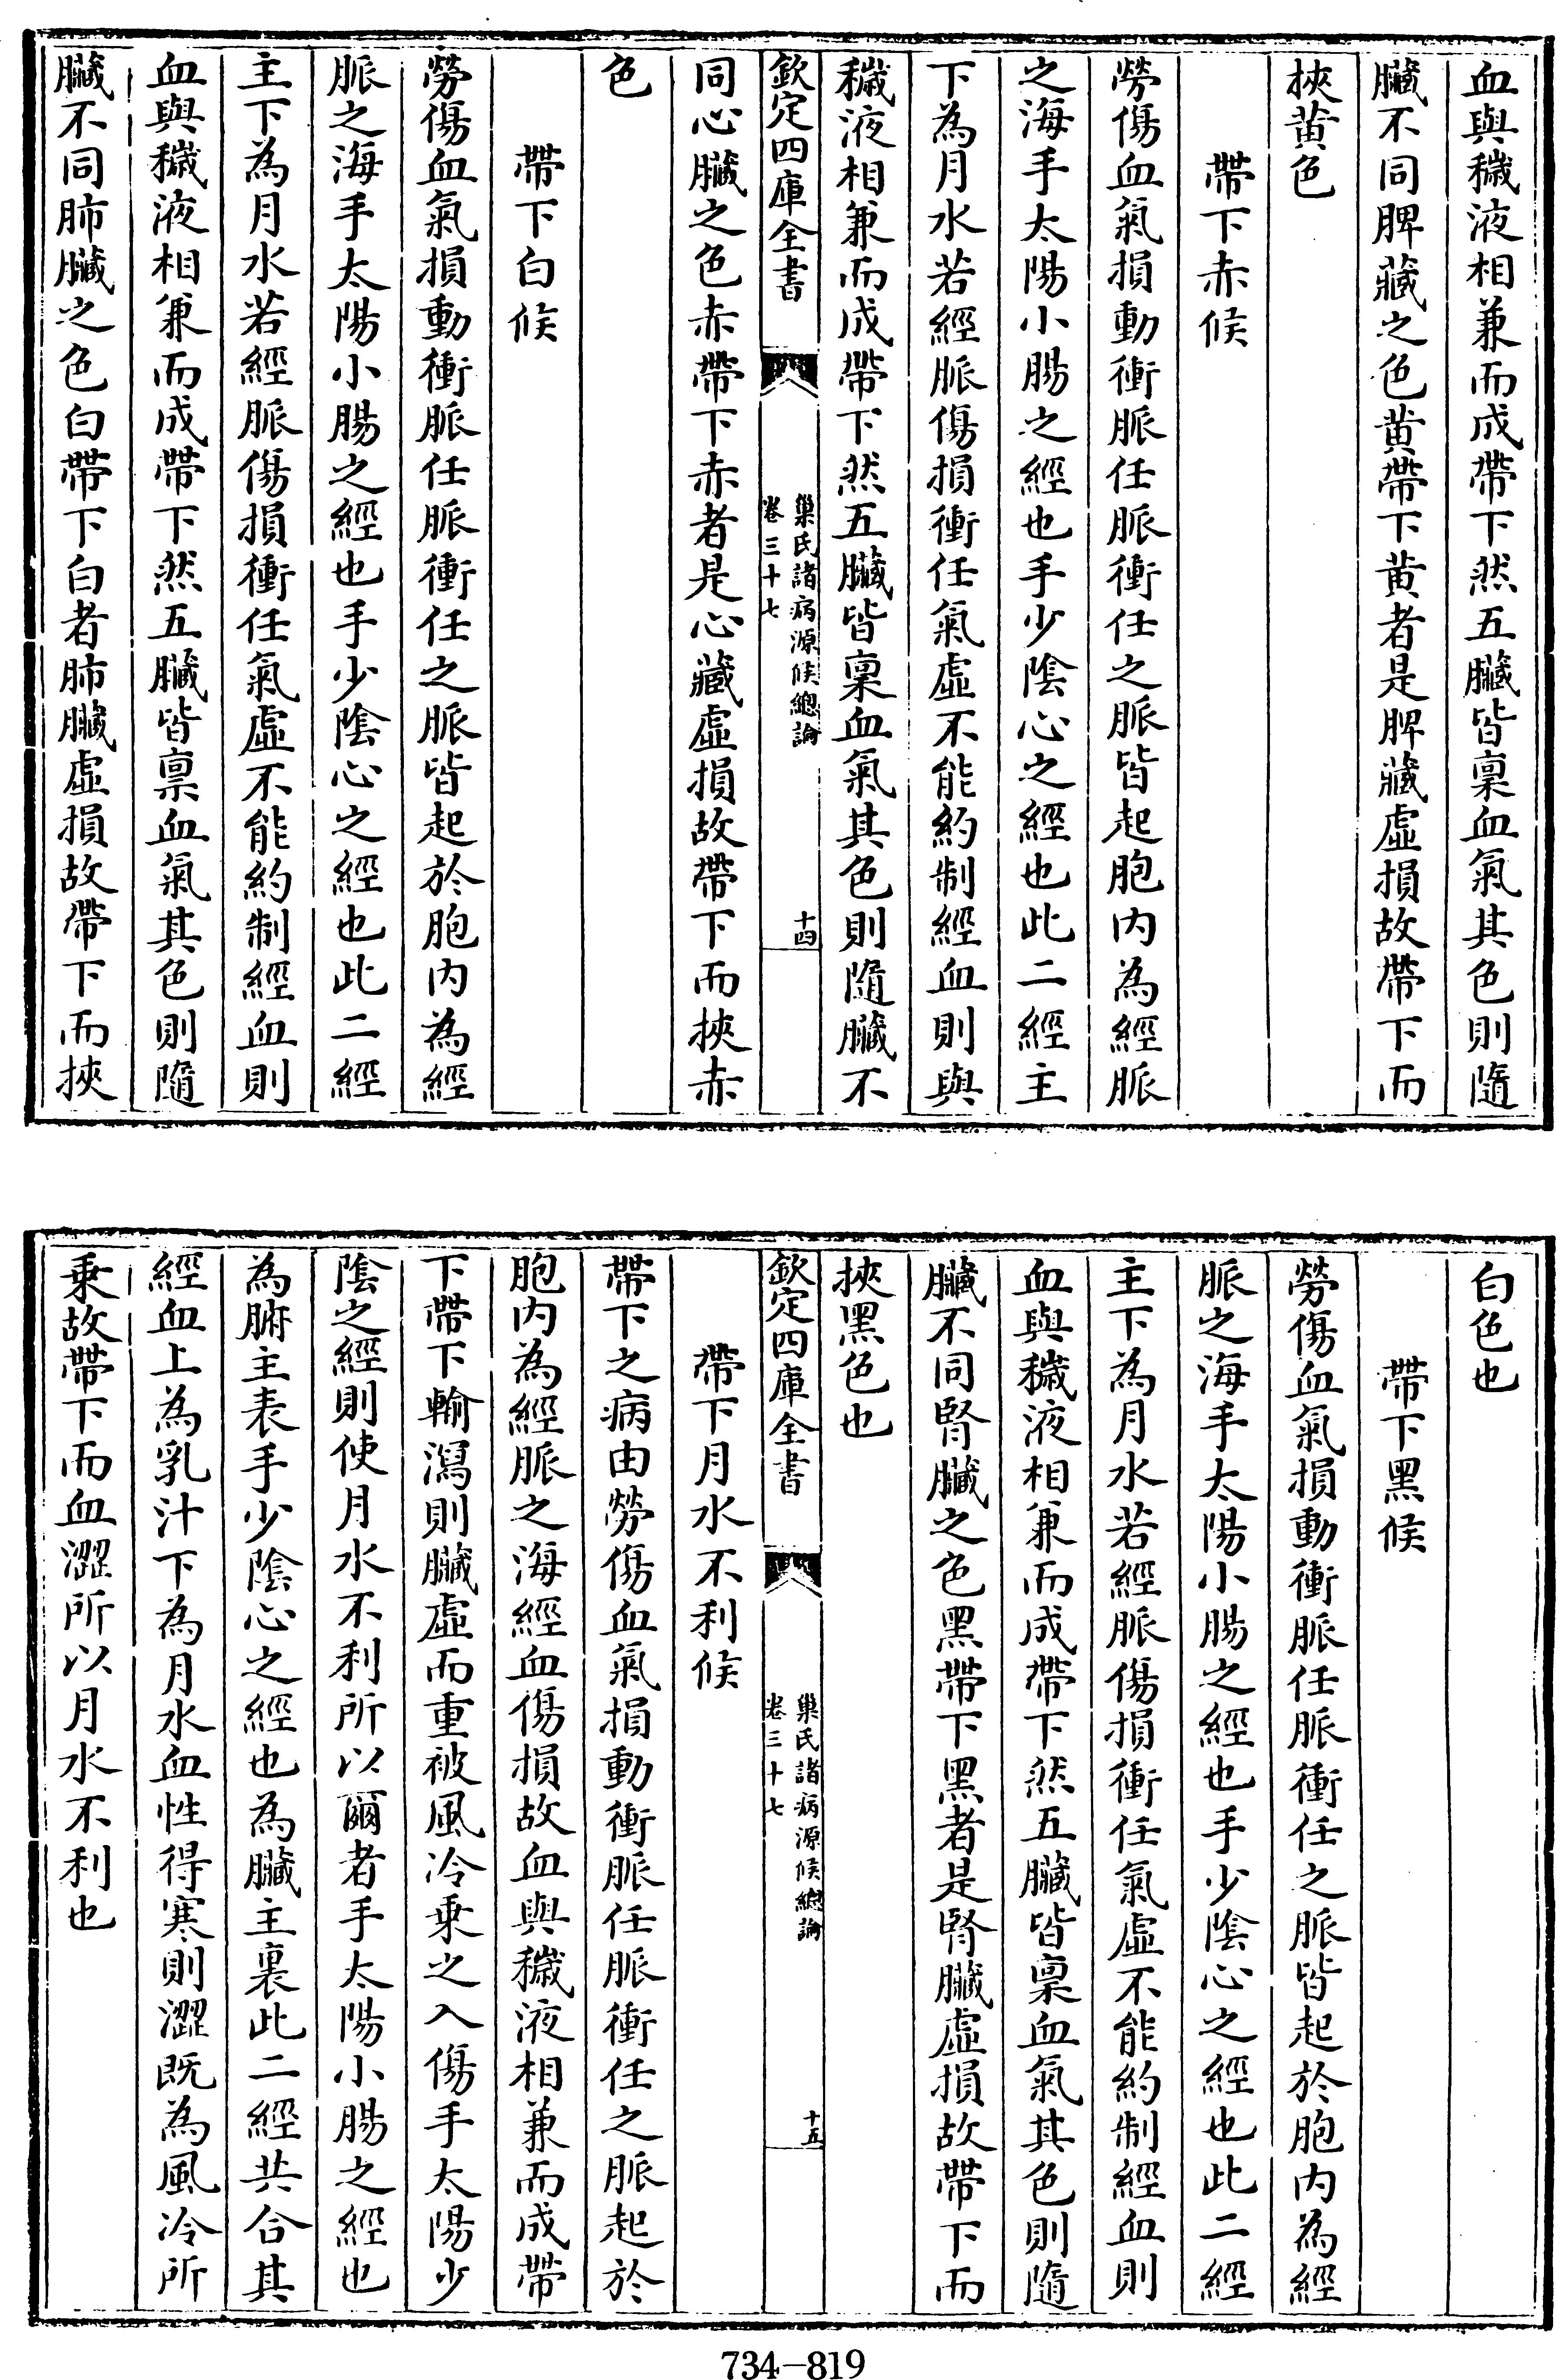 血與穢液相兼而成帶下然五臟皆稟血氣其色則隨
臟不同脾藏之色黄帶下黄者是脾藏虛損故帶下而
挾黄色
帶下赤候
勞傷血氣損動衝脈任脈衝任之脈皆起胞内為經脈
之海手太陽小腸之經也手少陰心之經也此二經主
下為月水若經脈傷損衝任氣虛不能約制經血則與
穢液相兼而成帶下然五臟皆稟血氣其色則隨臟不
欽定四庫全書
巢氏諸病源候總論
卷三十七
十四
同心臟之色赤帶下赤者是心藏虛損故帶下而挾赤
色
帶下白候
勞傷血氣損動衝脈任脈衝任之脈皆起於胞内為經
脈之海手太陽小腸之經也手少陰心之經也此二經
主下為月水若經脈傷損衝任氣虛不能約制經血則
血與穢液相兼而成帶下然五臟皆稟血氣其色則隨
臟不同肺臟之色白帶下白者肺臟虛損故帶下而挾
白色也
帶下黑候
勞傷血氣損動衝脈任脈衝任之脈皆起於胞内為經
脈之海手太陽小腸之經也手少陰心之經也此二經
主下為月水若經脈傷損衝任氣虛不能約制經血則
血與穢液相兼而成帶下然五臟皆稟血氣其色則隨
臟不同腎臟之色黑帶下黑者是腎臟虛損故帶下而
挾黑色也
欽定四庫全書
巢氏諸病源候總論
卷三十七
十五
帶下月水不利候
帶下之病由勞傷血氣損動衝脈任脈衝任之脈起於
胞内為經脈之海經血傷損故血與穢液相兼而成帶
下帶下輸瀉則臟虛而重被風冷乗之入傷手太陽少
陰之經則使月水不利所以爾者手太陽小腸之經也
為腑主表手少陰心之經也為臟主裏此二經共合其
經血上為乳汁下為月水血性得寒則澀既為風冷所
乗故帶下而血澀所以月水不利也
734-819